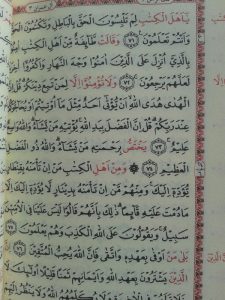 يٰٓاَهْلَ الْكِتٰبِ لِمَ تَلْبِسُوْنَ الْحَقَّ بِالْبَاطِلِ وَتَكْتُمُوْنَ الْحَقَّ
وَاَنْتُمْ تَعْلَمُوْنَ ٧١ وَقَالَتْ طَّآئِفَةٌ مِّنْ اَهْلِ الْكِتٰبِ اٰمِنُوْا
بِالَّذِيْٓ اُنْزِلَ عَلَى الَّذِيْنَ اٰمَنُوْا وَجْهَ النَّهَارِ وَاكْفُرُوْٓا اٰخِرَهٗ
لَعَلَّهُمْ يَرْجِعُوْنَ ٧٢ وَلَا تُؤْمِنُوْٓا اِلَّا لِمَنْ تَبِعَ دِيْنَكُمْ قُلْ اِنَّ
الْهُدٰى هُدَى اللّٰهِ اَنْ يُّؤْتٰٓى اَحَدٌ مِّثْلَ مَآ اُوْتِيْتُمْ اَوْ يُحَآجُّوْكُمْ
عِنْدَ رَبِّكُمْ قُلْ اِنَّ الْفَضْلَ بِيَدِ اللّٰهِ يُؤْتِيْهِ مَنْ يَّشَآءُ وَاللّٰهُ وَاسِعٌ
عَلِيْمٌ ٧٣ يَّخْتَصُّ بِرَحْمَتِهٖ مَنْ يَّشَآءُ وَاللّٰهُ ذُو الْفَضْلِ
الْعَظِيْمِ ٧٤ وَمِنْ اَهْلِ الْكِتٰبِ مَنْ اِنْ تَأْمَنْهُ بِقِنْطَارٍ
يُّؤَدِّهٖٓ اِلَيْكَ وَمِنْهُمْ مَّنْ اِنْ تَأْمَنْهُ بِدِيْنَارٍ لَّا يُؤَدِّهٖٓ اِلَيْكَ اِلَّا
مَا دُمْتَ عَلَيْهِ قَآئِمًا ذٰلِكَ بِاَنَّهُمْ قَالُوْا لَيْسَ عَلَيْنَا فِى الْاُمِّيّٖنَ
سَبِيْلٌ وَيَقُوْلُوْنَ عَلَى اللّٰهِ الْكَذِبَ وَهُمْ يَعْلَمُوْنَ ٧٥
بَلٰى مَنْ اَوْفٰى بِعَهْدِهٖ وَاتَّقٰى فَاِنَّ اللّٰهَ يُحِبُّ الْمُتَّقِيْنَ ٧٦ اِنَّ
الَّذِيْنَ يَشْتَرُوْنَ بِعَهْدِ اللّٰهِ وَاَيْمَانِهِمْ ثَمَنًا قَلِيْلًا اُولٰٓئِكَ
لَا خَلَاقَ لَهُمْ فِى الْاٰخِرَةِ وَلَا يُكَلِّمُهُمُ اللّٰهُ وَلَا يَنْظُرُ